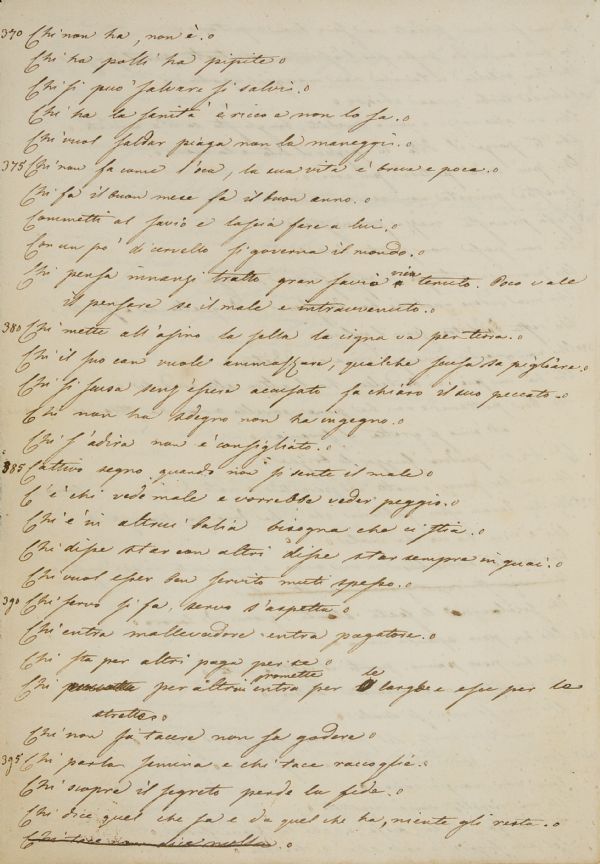 370 Chi non ha, non è.
Chi ha polli ha pipite
Chi si può salvare si salvi.
Chi ha la sanità è ricco e non lo sa.
Chi vuol saldar piaga non la maneggi.
375 Chi non fa come l'oca, la sua vita è breve e poca.
Chi fa il buon mese fa il buon anno.
Commetti al savio e lascia fare a lui.
Con un pò di cervello si governa il mondo.
Chi pensa innanzi tratto gran savio vien tenuto. Poco vale
il pensare se il male e intravvenuto.
380 Chi mette all'asino la sella la cigna va per terra.
Chi il suo can vuole ammazzare, qualche scusa sa pigliare.
Chi si scusa senz'essere accusato fa chiaro il suo peccato.
Chi non ha sdegno non ha ingegno.
Chi s'adira non è consigliato.
385 Cattivo segno quando non si sente il male
C'è chi vede male e vorrebbe veder peggio.
Chi è in altrui balià bisogna che ci stia.
Chi disse star con altri disse star sempre in guai.
Chi vuol esser ben servito muti spesso.
390 Chi servo si fa, servo s'aspetta.
Chi entra mallevadore entra pagatore.
Chi sta per altri paga per se
Chi per altrui promette entra per le larghe e esce per le
strette
Chi non sa tacere non sa godere
395 Chi parla semina e chi tace raccoglie.
Chi scopre il segreto perde la fede.
Chi dice quel che sa e da quel che ha, niente gli resta.
Chi tace non dice nulla.